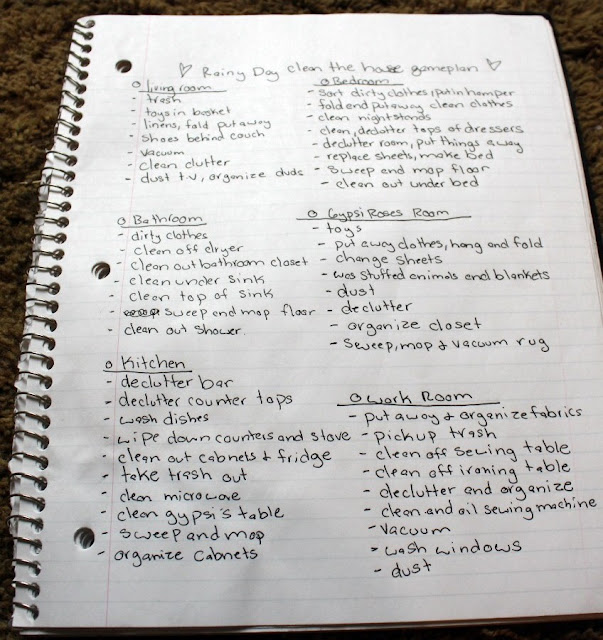 ♡ Rainy Day clean the house gameplan ♡
o living room
- trash
- toys in basket
- linens, fold put away
- shoes behind couch
- vacuum
- clean clutter
- dust t.v, organize dvds
o Bedroom
- sort dirty clothes, put in hamper
- fold and put away clean clothes
- clean night stands
- clean, declutter tops of dressers
- declutter room, put things away
- replace sheets, make bed
- sweep and mop floor
- clean out under bed
o Bathroom
- dirty clothes
- clean off dryer
- clean out bathroom closet
- clean under sink
- clean top of sink
- sweep and mop floor
- clean out shower.
o Gypsi Roses Room
- toys
- put away clothes, hang and fold
- change sheets
- was stuffed animals and blankets
- dust
- declutter
- organize closet
- sweep, mop & vacuum rug
o Kitchen
- declutter bar
- declutter counter tops
- wash dishes
- wipe down counters and stove
- clean out cabnets & fridge
- take trash out
- clean microwave
- clean gypsi's table
- sweep and mop
- organize cabnets
o Work Room
- put away & organize fabrics
- pickup trash
- clean off sewing table
- clean off ironing table
- declutter and organize
- clean and oil sewing machine
- vacuum
- wash windows
- dust